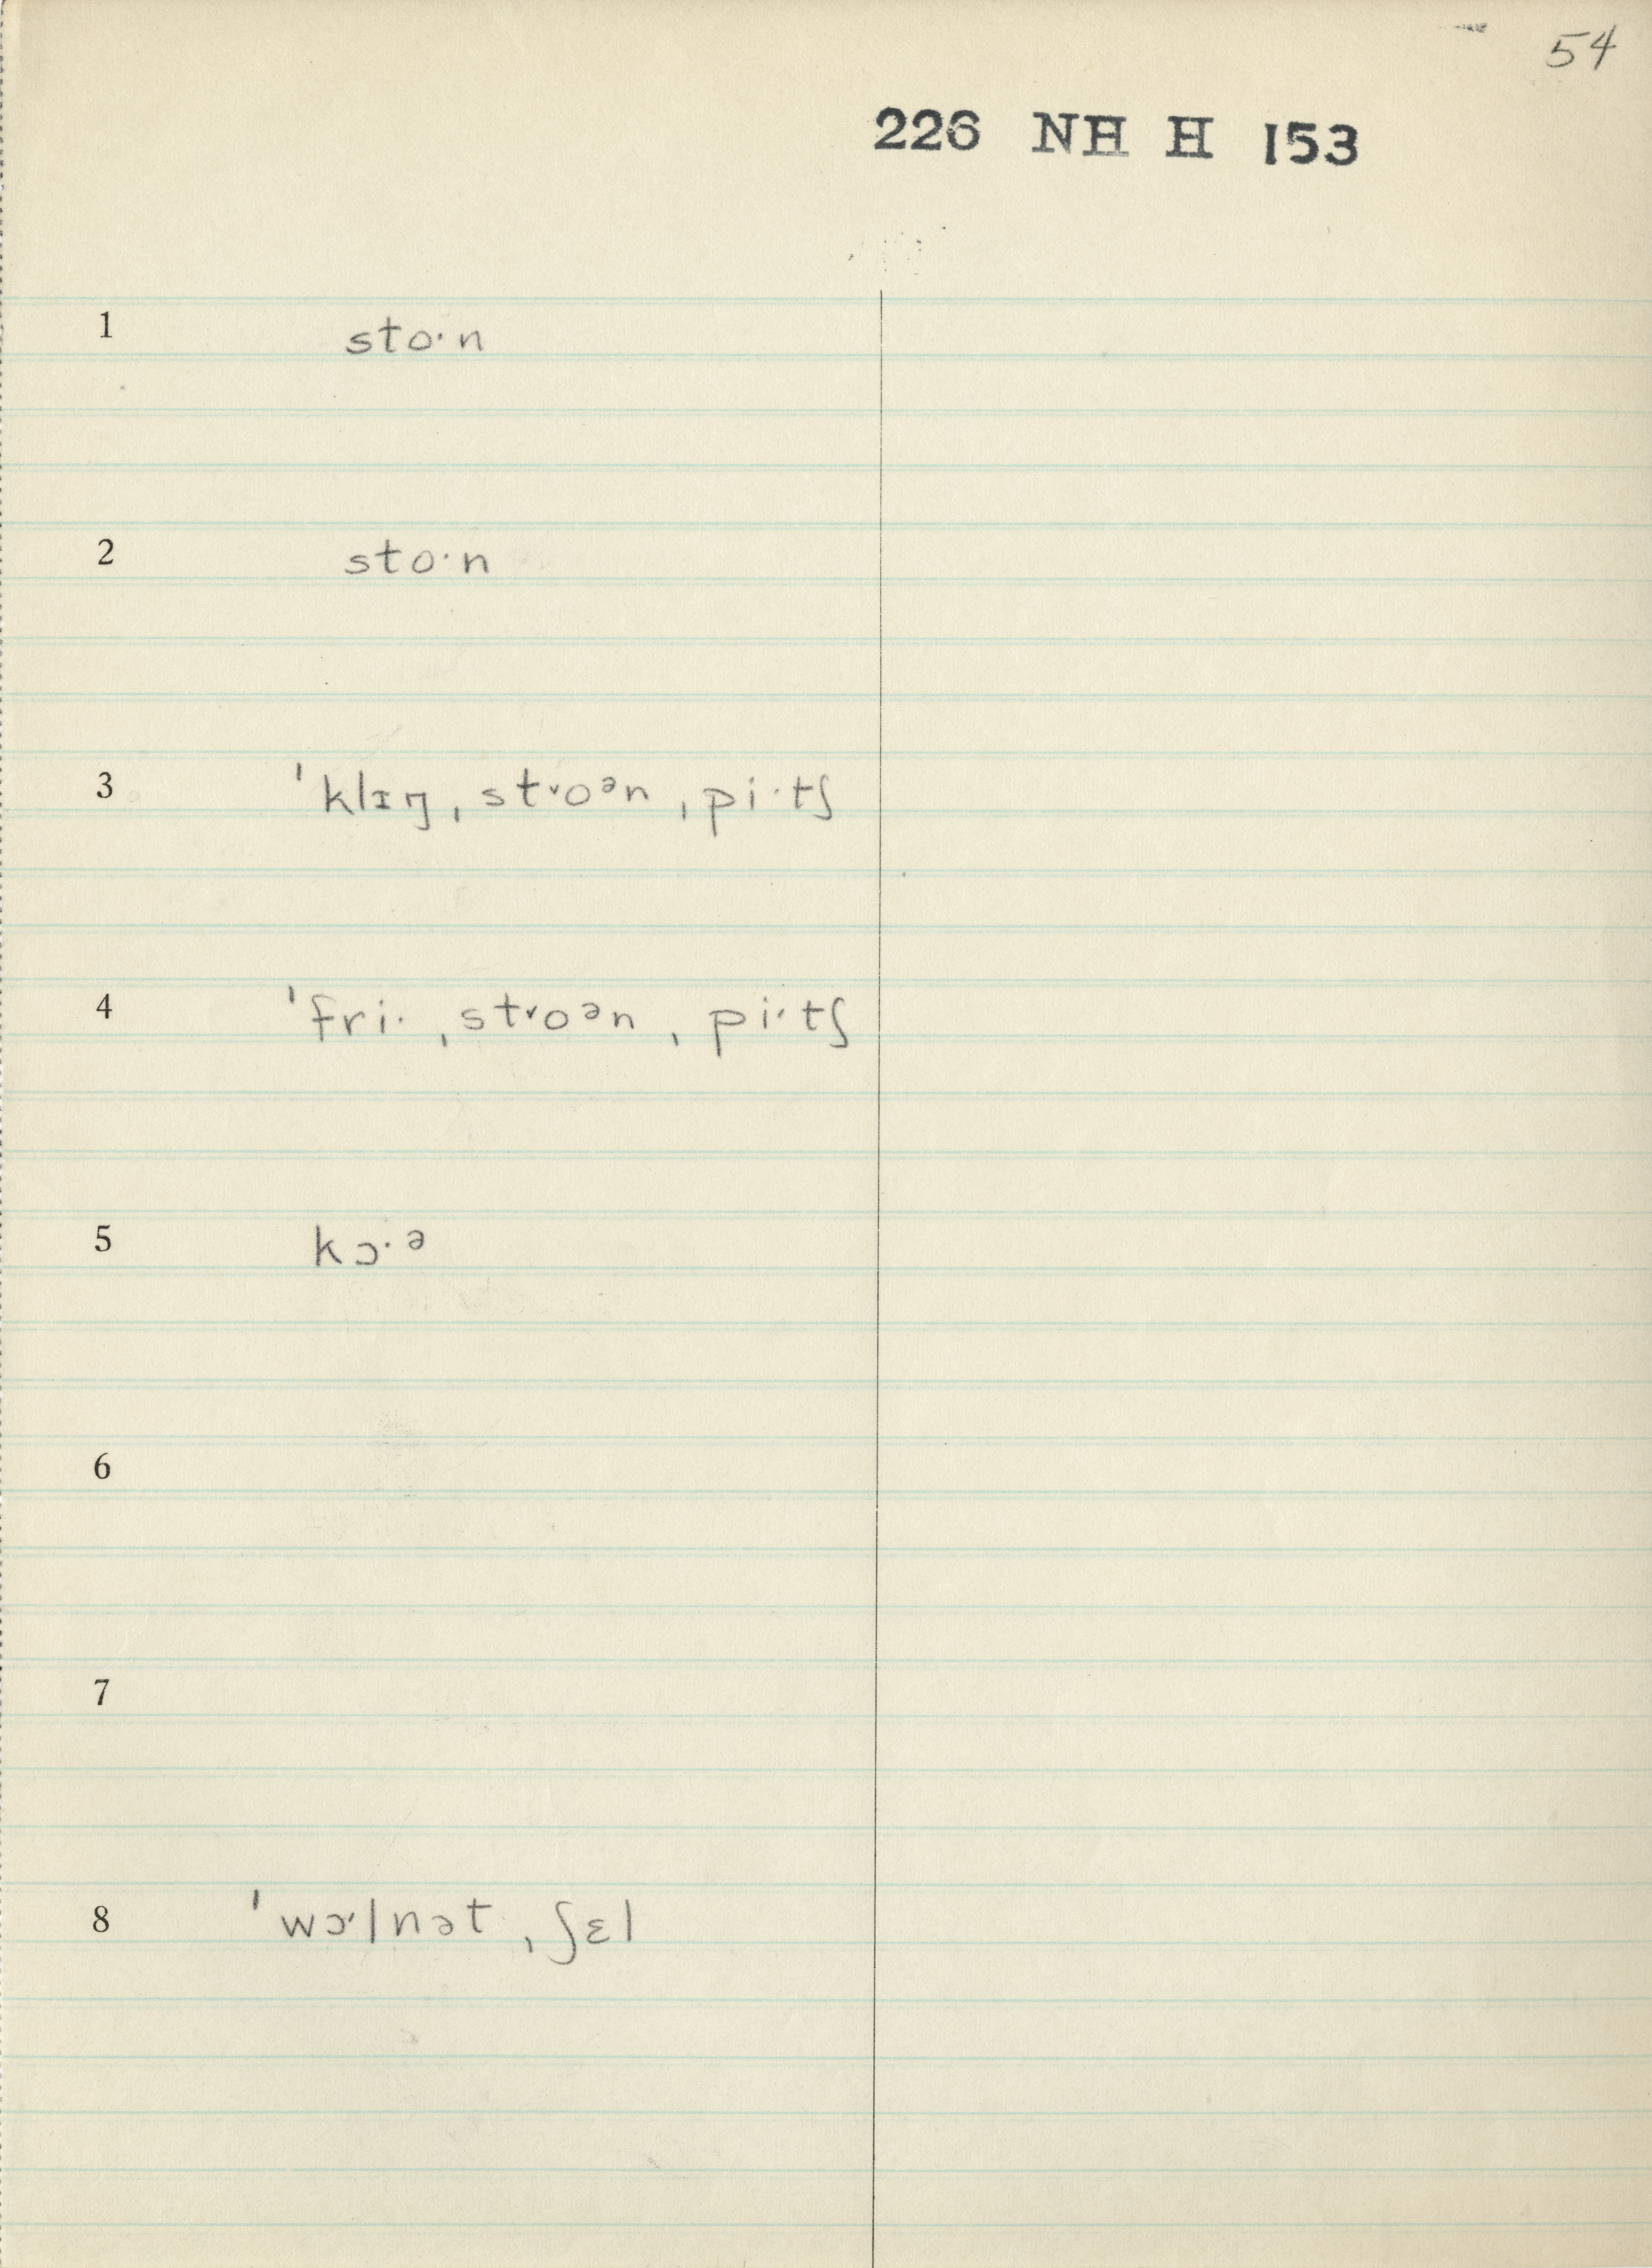 54
226 NH H 153
1 stoˑn
2 stoˑn
3 ˈklɪŋ ˌst˅oᵊn ˌpiˑtʃ
4 ˈfriˑ ˌst˅oᵊn ˌpiˑtʃ
5 kɔˑᵊ
6
7
8 ˈwɔˑlnət ˌʃɛl